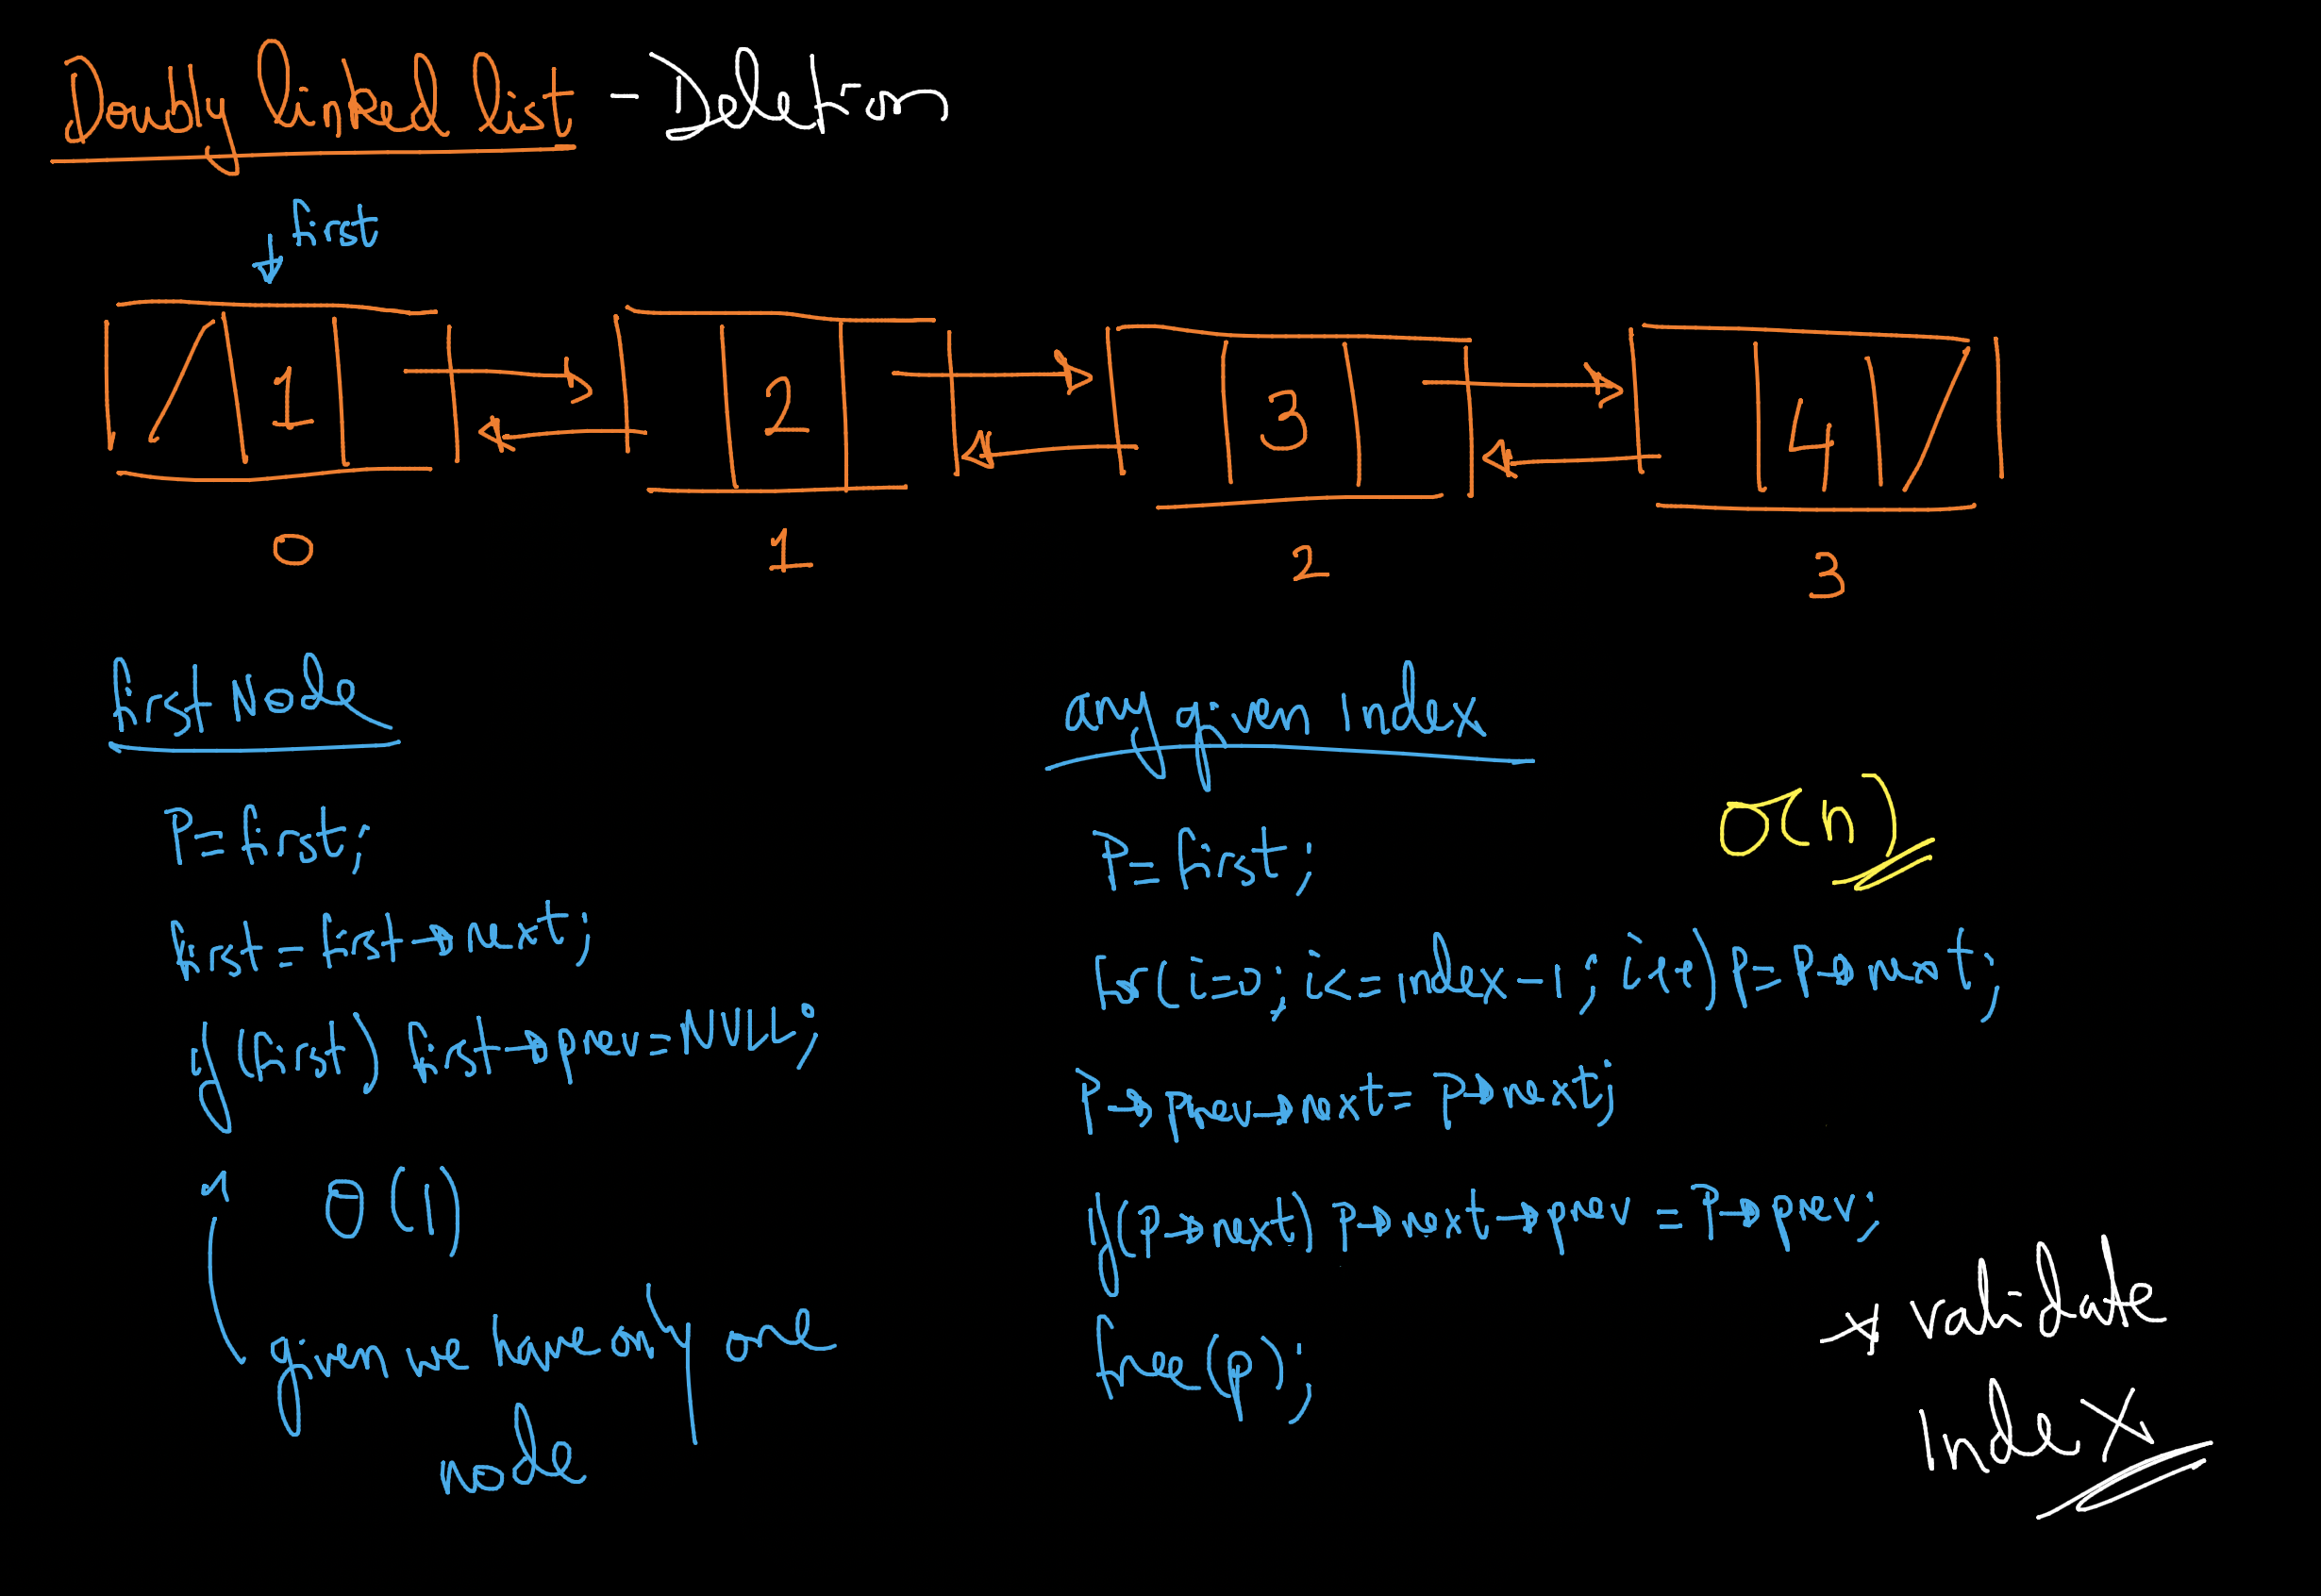 Doubly linked list - Deletion
first
/ 1 2 3 4 /
0 1 2 3
first Node
P=first;
first=first→next;
if(first) first→prev=NULL;
O(1)
given we have only one
node
any given Index
O(n)
P=first;
for(i=0; i<=index-1; i++) p=p→next;
P→prev→next=P→next;
if(P→next) P→next→prev=P→prev;
free(p);
* validate
Index